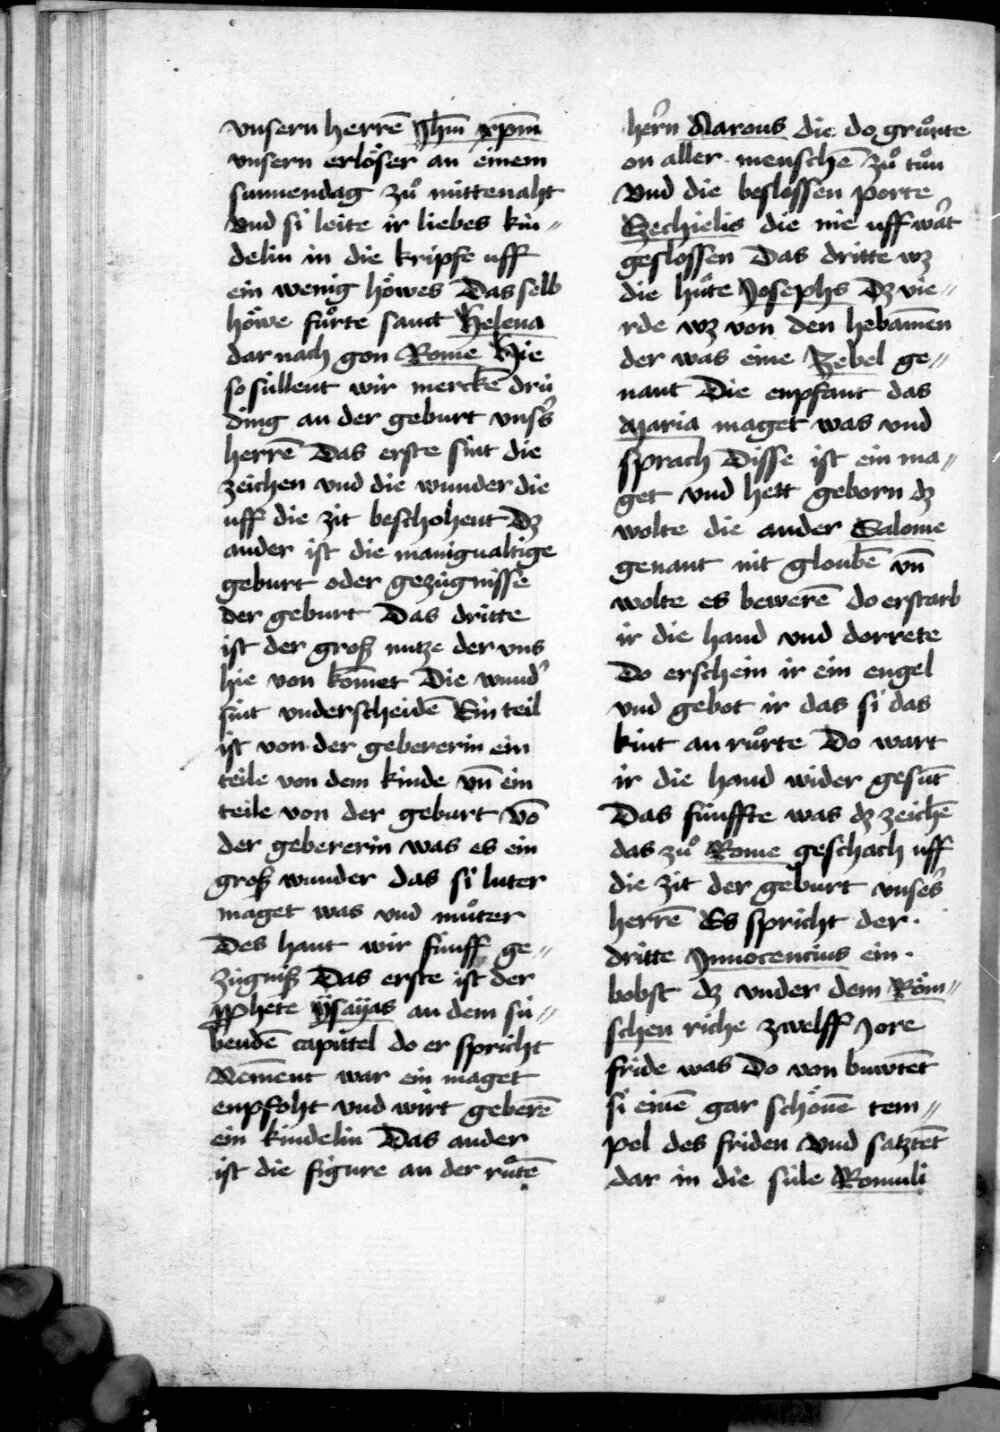 vnsern herrē Jhm̄ xp̄m
vnsern erlöser an einem
sunnendag zuͦ mittenaht
vnd si leite ir liebes kin〃
delin in die kripfe uff
ein wenig höwes Das selb
höwe fuͦrte sanct Helena
dar nach gon Rome Hie
so süllent wir merckē drü
ding an der geburt vnsˢ
herrē Das erste sint die
zeichen vnd die wunder die
uff die zit beschohent Dz
ander ist die manigualtige
geburt oder gezügnisse
der geburt Das dritte
ist der groß nutze der vns
hie von kōmet Die wundˀ
sint vnderscheidē Ein teil
ist von der gebererin ein
teile von dem kinde vn̄ ein
teile von der geburt vō
der gebererin was es ein
groß wunder das si luter
maget was vnd muͦter
Des hant wir fünff ge〃
zügniß Das erste ist der
ꝓphete ÿsaÿas an dem si〃
bendē capittel do er spricht
Nement war ein maget
enpfoht vnd wirt geberē
ein kindelin Das ander
ist die figure an der ruͦtē
herˀn Aarons die do gruͦnte
on aller menschē zuͦ tuͦn
Vnd die beslossen porte
Ezechielis die nie uff wart
geslossen Das dritte wz
die huͦte Josephs Dz vie〃
rde wz von den hebāmen
der was eine Zebel ge〃
nant Die enpfant das
Maria maget was vnd
sprach Disse ist ein ma〃
get vnd hett geborn dz
wolte die ander Salome
genant nit gloubē vn̄
wolte es bewerē do erstarb
ir die hand vnd dorrete
Do erschein ir ein engel
vnd gebot ir das si das
kint an ruͦrte Do wart
ir die hand wider gesūt
Das fünffte was dz zeichē
das zuͦ Rome geschach uff
die zit der geburt vnsesˀ
herrē Es spricht der
dritte Innocencius ein
bobst dz vnder dem Röm〃
schen riche zwelff Jore
fride was Do von buwtēt
si einē gar schönē tem〃
pel des friden Vnd satztēt
dar in die süle Romuli